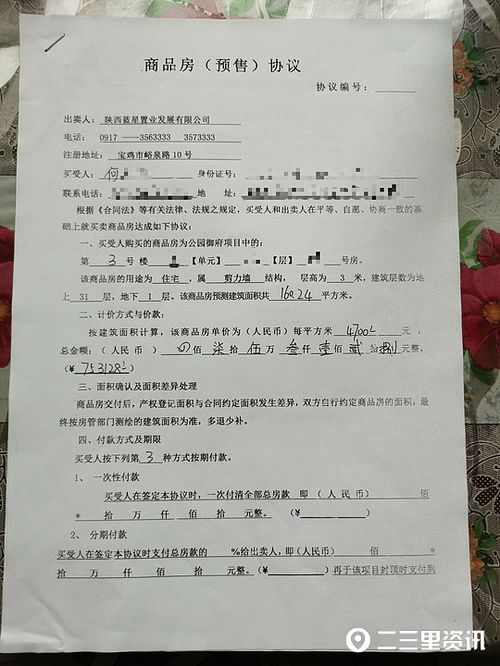 商品房（预售）协议
协议编号：
出卖人： 陕西蓝星置业发展有限公司
电话： 0917 ——3563333 3573333
注册地址： 宝鸡市峪泉路10号
买受人： 何 身份证号：
联系电话： 地 址：
根据《合同法》等有关法律、法规之规定，买受人和出卖人在平等、自愿、协商一致的基
础上就买卖商品房达成如下协议：
一、买受人购买的商品房为公园御府项目中的：
第 3 号 楼 【单元】 【层】 号房。
该商品房的用途为 住宅 ，属 剪力墙 结构， 层高为 3 米，建筑层数为地
上 31 层，地下 1 层。该商品房预测建筑面积共 160.24 平方米。
二、计价方式与价款：
按建筑面积计算，该商品房单价为（人民币）每平方米 4700- 元 ，
总金额：（人 民 币 ） 佰 柒 拾 伍 万 叁 仟 壹 佰 贰 拾 捌 元整。
（￥ 753128- ）
三、面积确认及面积差异处理
商品房交付后，产权登记面积与合同约定面积发生差异，双方自行约定商品房的面积，最
终按房管部门测绘的建筑面积为准，多退少补。
四、付款方式及期限
买受人按下列第 3 种方式按期付款。
1、 一次性付款
买受人在签定本协议时，一次付清全部总房款 即（ 人 民 币 ） 佰
* 拾 万 仟 佰 拾 元整。（￥ ）
2、 分期付款
买受人在签定本协议时支付总房款的 %给出卖人，即（人民币） 佰 *
拾 万 仟 佰 拾 元整。（￥ ）再于该项目封顶时支付到
二三里资讯